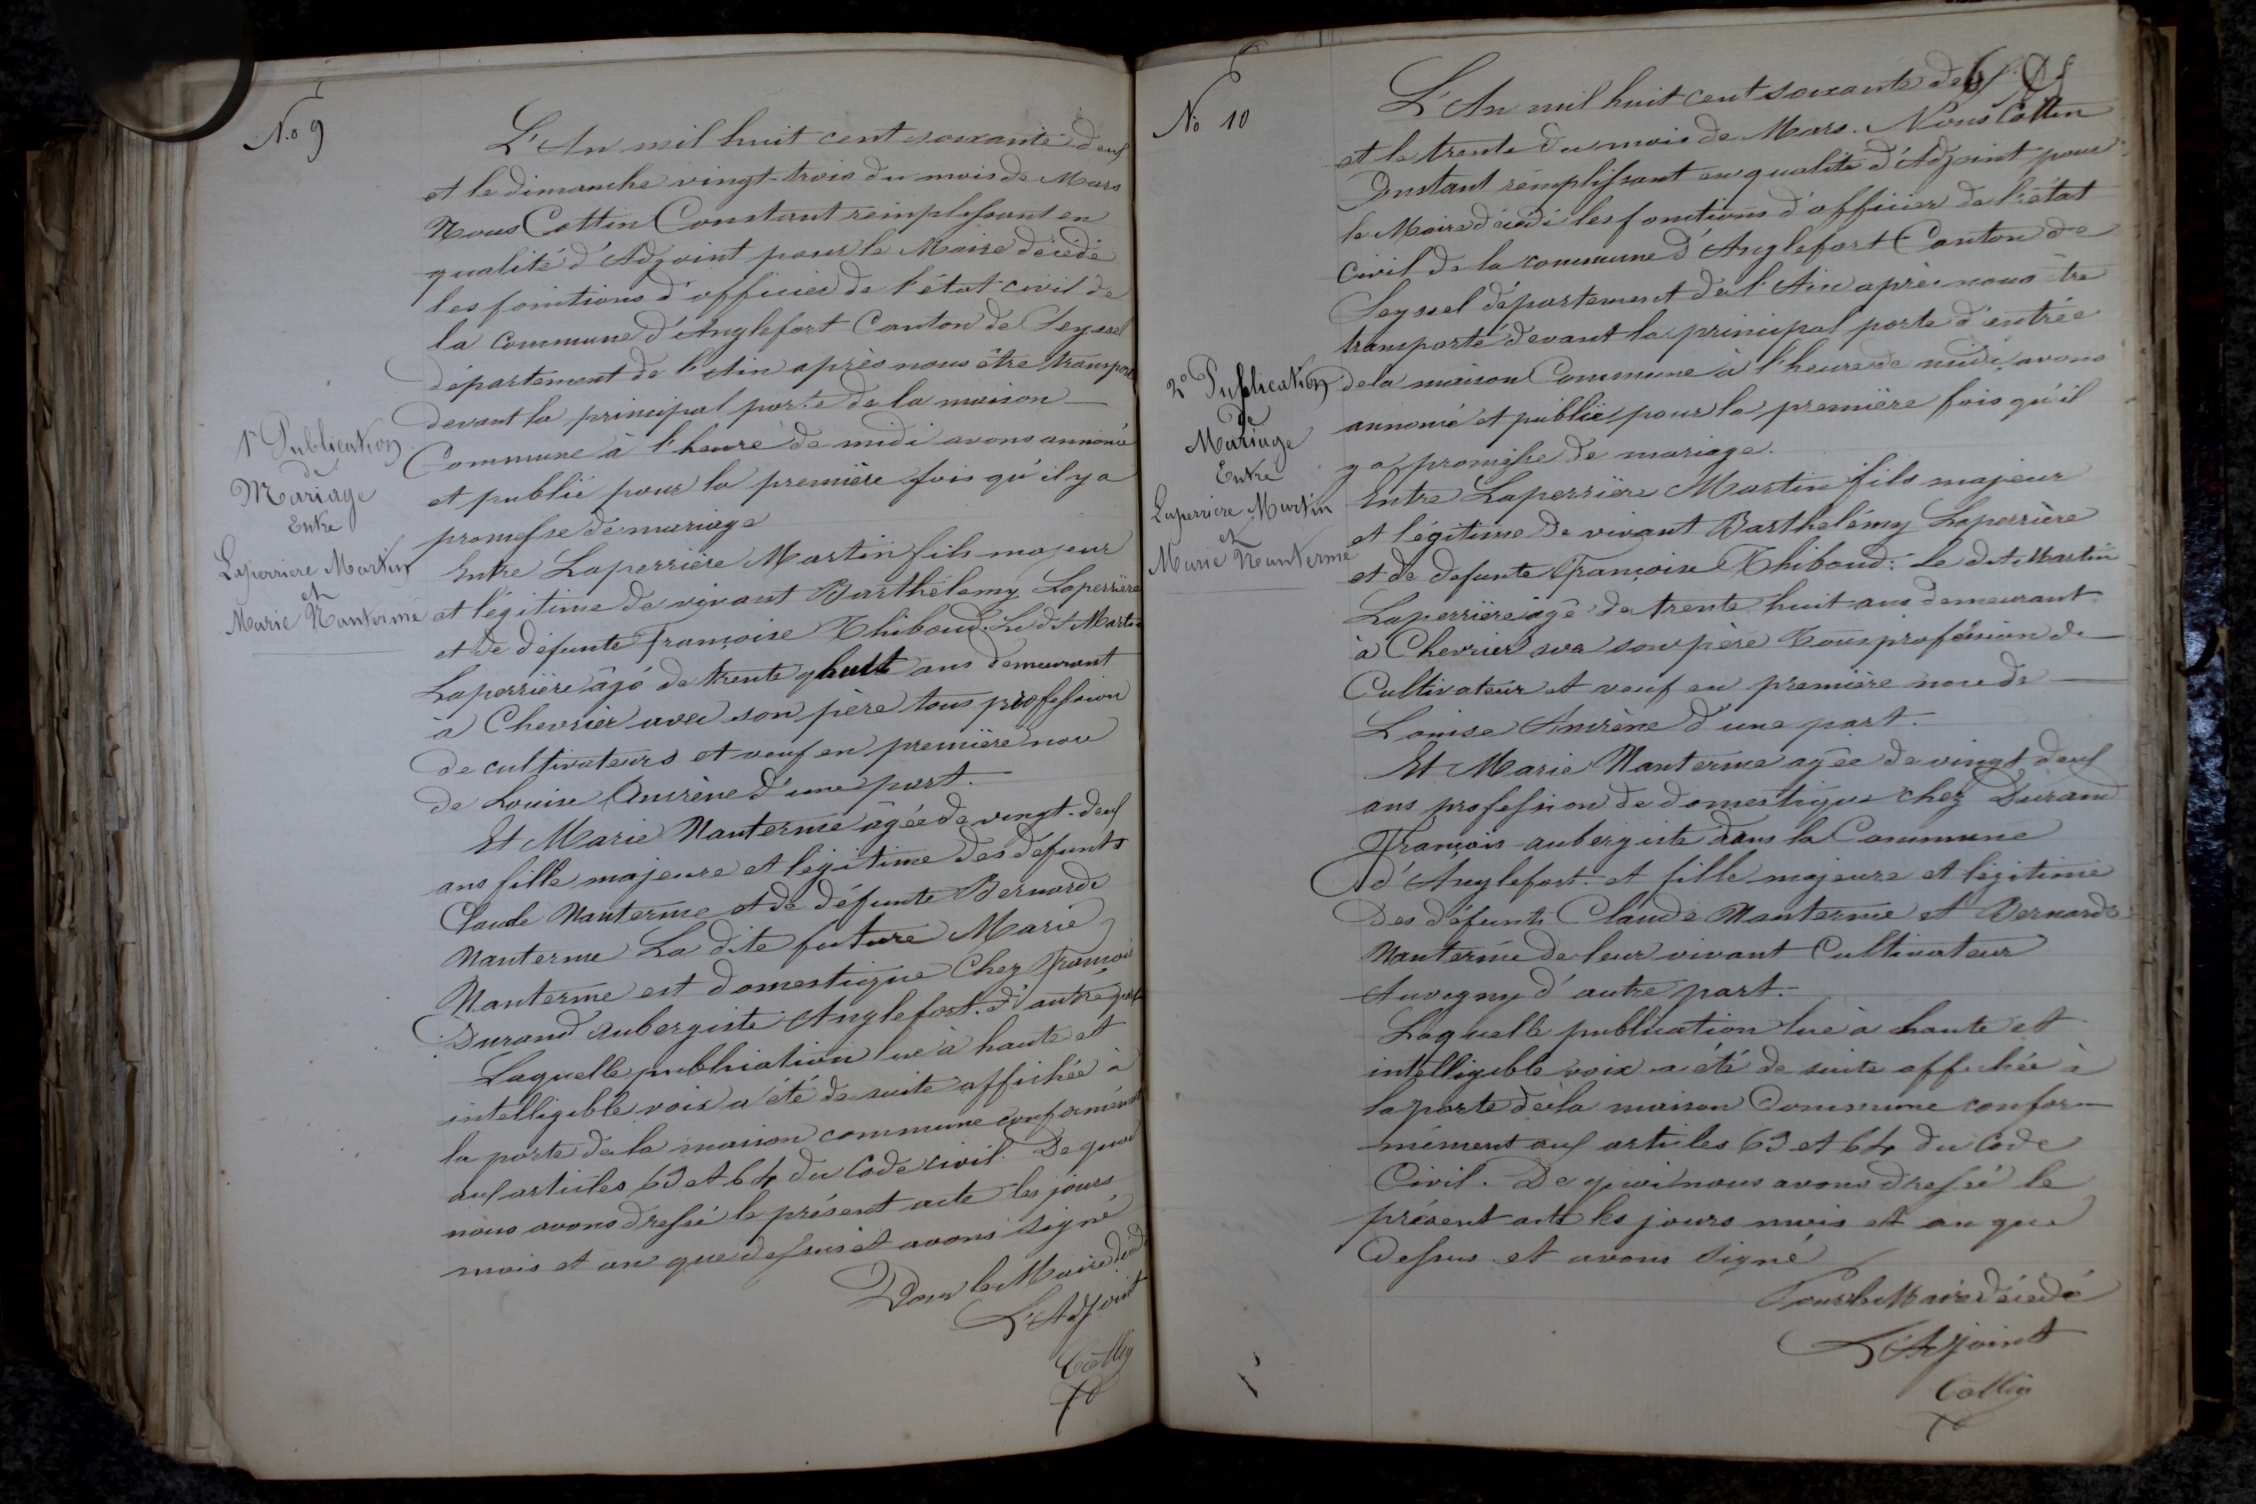 No 9
1e Publication
de
Mariage
Entre
Laperrière Martin
et
Marie Nanterme
L'An mil huit cent soixante deux
et le dimanche vingt-trois du mois de Mars
Nous Cottin Constant remplissant en
qualité d'Adjoint pour le Maire décédé
les fonctions d'officier de l'état civil de
la commune d'Anglefort Canton de Seyssel
département de l'Ain après nous être transporté
devant la principal porte de la maison
Commune à l'heure de midi avons annoncé
et publié pour la première fois qu'il y a
promesse de mariage
Entre Laperrière Martin fils majeur
et légitime de vivant Barthélemy Laperrière
et de défunte Françoise Thiboud. Le dit Martin
Laperrière âgé de trente huit ans demeurant
à Chevrier avec son père tous profession
de cultivateurs et veuf en première noce
de Louise Ancrène d'une part.
Et Marie Nanterme âgée de vingt-deux
ans fille majeure et légitime des défunts
Claude Nanterme et de défunte Bernarde
Nanterme La dite future Marie
Nanterme est domestique Chez François
Durand aubergiste Anglefort. d'autre part
Laquelle publication lue à haute et
intelligible voix a été de suite affichée à
la porte de la maison commune conformément
aux articles 63 et 64 du Code civil. De quoi
nous avons dressé le présent acte les jours
mois et an que dessus et avons signé
Pour le Maire décédé
L'Adjoint
Cottin
No 10
2e Publication
de
Mariage
Entre
Laperrière Martin
et
Marie Nanterme
L'An mil huit cent soixante deux
et le trente du mois de Mars. Nous Cottin
Constant remplissant en qualité d'Adjoint pour
le Maire décédé les fonctions d'officier de l'état
civil de la commune d'Anglefort Canton de
Seyssel département de l'Ain après nous être
transporté devant la principal porte d'entrée
de la maison Commune à l'heure de midi, avons
annoncé et publié pour la première fois qu'il
y a promesse de mariage.
Entre Laperrière Martin fils majeur
et légitime de vivant Barthélémy Laperrière
et de defunte Françoise Thiboud: Le dit Martin
Laperrière âgé de trente huit ans demeurant
à Chevrier son père Tous profession de
Cultivateur et veuf en première noce de
Louise Ancrène d'une part.
Et Marie Nanterme agée de vingt deux
ans profession de domestique chez Durand
François aubergiste dans la Commune
d'Anglefort. et fille majeure et légitime
Des défunts Claude Nanterme et Bernarde
Nanterme de leur vivant Cultivateur
Auvegny d'autre part.
Laquelle publication lue à haute et
intelligible voix a été de suite affichée à
la porte de la maison Commune confor-
mément aux articles 63 et 64 du Code
Civil. De quoi nous avons dressé le
présent acte les jours mois et an que
dessus et avons signé
Pour le Maire décédé
L'Adjoint
Cottin